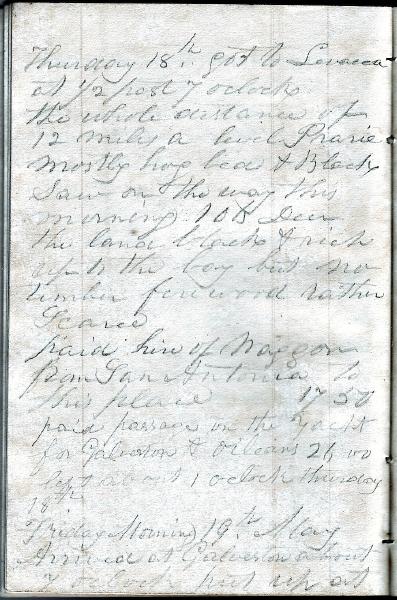 Thursday 18th. got to Levacca
at 1/2 past 7 oclock
the whole distance of
12 miles a level Prarie
mostly hog bed & Black
Saw on the way this
morning 108 Deer
the land black & rich
up to the bay but no
timber firewood rather
Scarce
paid hire of Waggon
from San Antonia to
this place 17 50
paid passage on the Yacht
for Galveston & Orleans 26 00
left about 1 oclock thursday
18th
Friday Morning 19th May
Arrived at Galveston about
7 oclock put up at